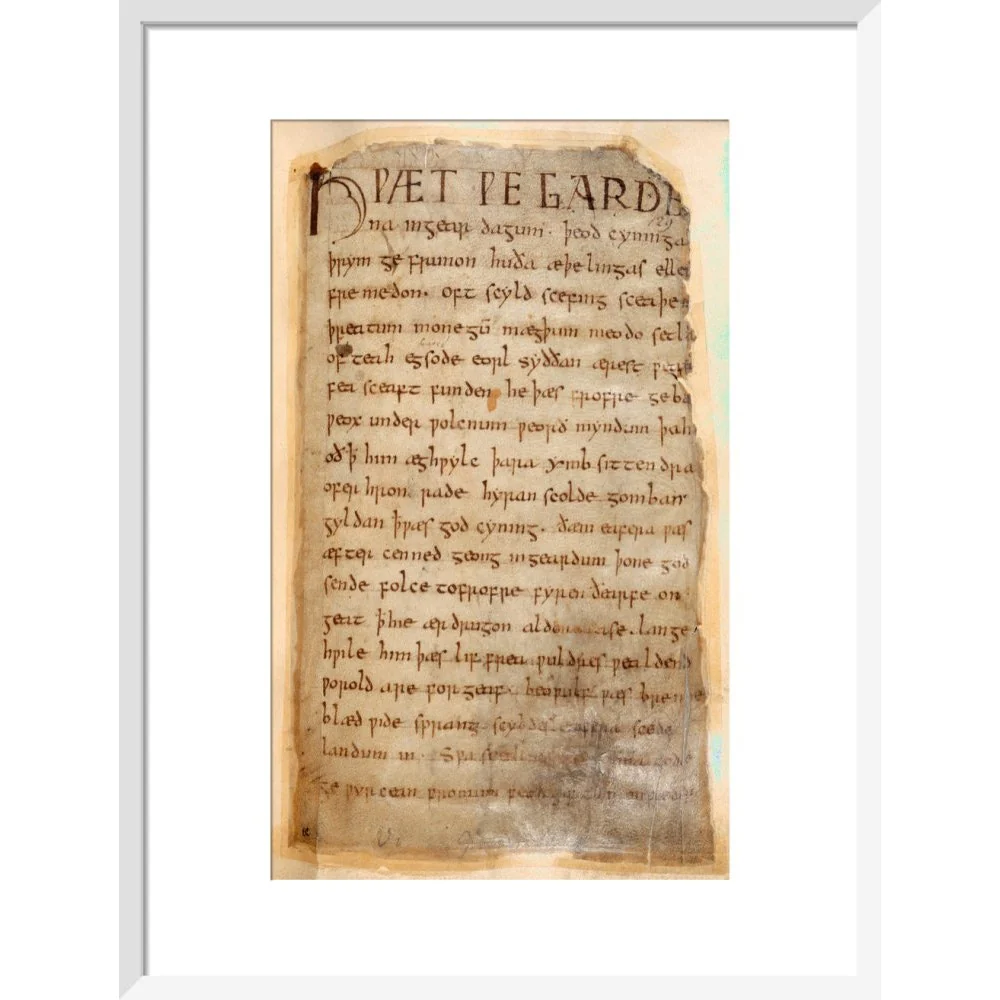 HǷÆT ǷE GARDE
na in gear dagum. þeod cyninga
þrym ge frunon huða æþelingas elle
fremedon. oft scyld scefing sceaþe
þreatum monegū mægþum meodo setla
of teah egsode eorl syððan ærest
fea sceaft funden he þæs frofre geba
ƿeox under ƿolcnum ƿeorð myndum þah
oð ꝥ him æghƿylc þara ymb sittendra
ofer hron rade hyran scolde gomban
gyldan ꝥ ƿæs god cyning. ðæm eafera ƿæs
æfter cenned geong in geardum þone god
sende folce to frofre fyren ðearfe on
geat ꝥ hie ær drugon lange
hƿile him þæs lif frea ƿuldres ƿealdend
ƿorold are for geaf. beoƿulf ƿæs breme
blæd ƿide sprang scyldes eafera scede
landum in. Sƿa gode
ge ƿyrcean fromum